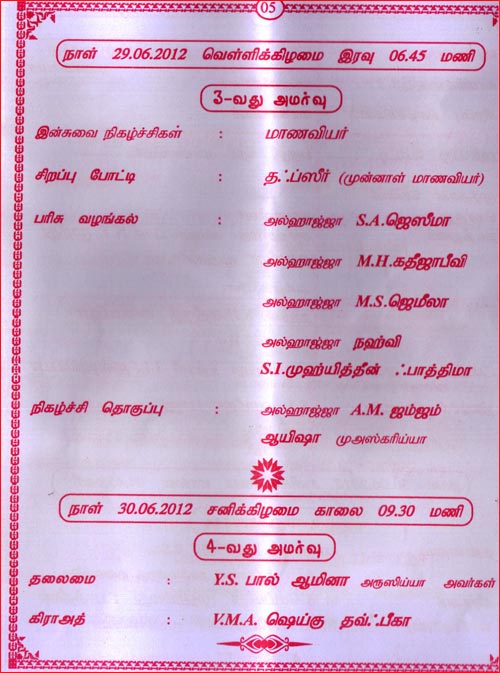 05
நாள் 29.06.2012 வெள்ளிக்கிழமை இரவு 06.45 மணி
3-வது அமர்வு
இன்சுவை நிகழ்ச்சிகள் : மாணவியர்
சிறப்பு போட்டி : தஃப்ஸீர் (முன்னாள் மாணவியர்)
பரிசு வழங்கல் : அல்ஹாஜ்ஜா S.A.ஜெஸீமா
அல்ஹாஜ்ஜா M.H.கதீஜாபீவி
அல்ஹாஜ்ஜா M.S.ஜெமீலா
அல்ஹாஜ்ஜா நஹ்வி
S.I.முஹ்யித்தீன் ஃபாத்திமா
நிகழ்ச்சி தொகுப்பு : அல்ஹாஜ்ஜா A.M. ஜம்ஜம்
ஆயிஷா முஅஸ்கரிய்யா
நாள் 30.06.2012 சனிக்கிழமை காலை 09.30 மணி
4-வது அமர்வு
தலைமை : Y.S. பால் ஆமினா அருஸிய்யா அவர்கள்
கிராஅத் : V.M.A. ஷெய்கு தவ்ஃபீகா